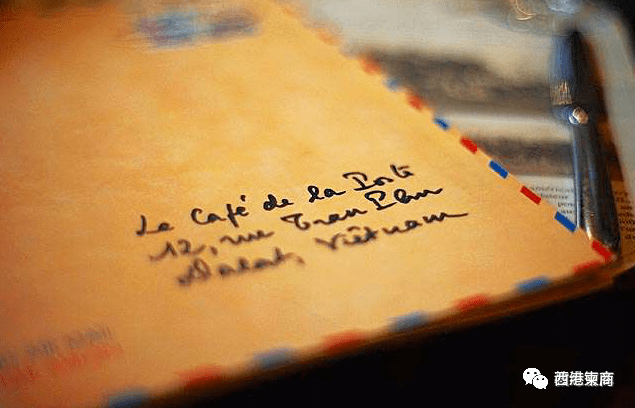 Le Café de la Poste
12, rue Tran Phu
Dalat, Viêtnam
西港柬商